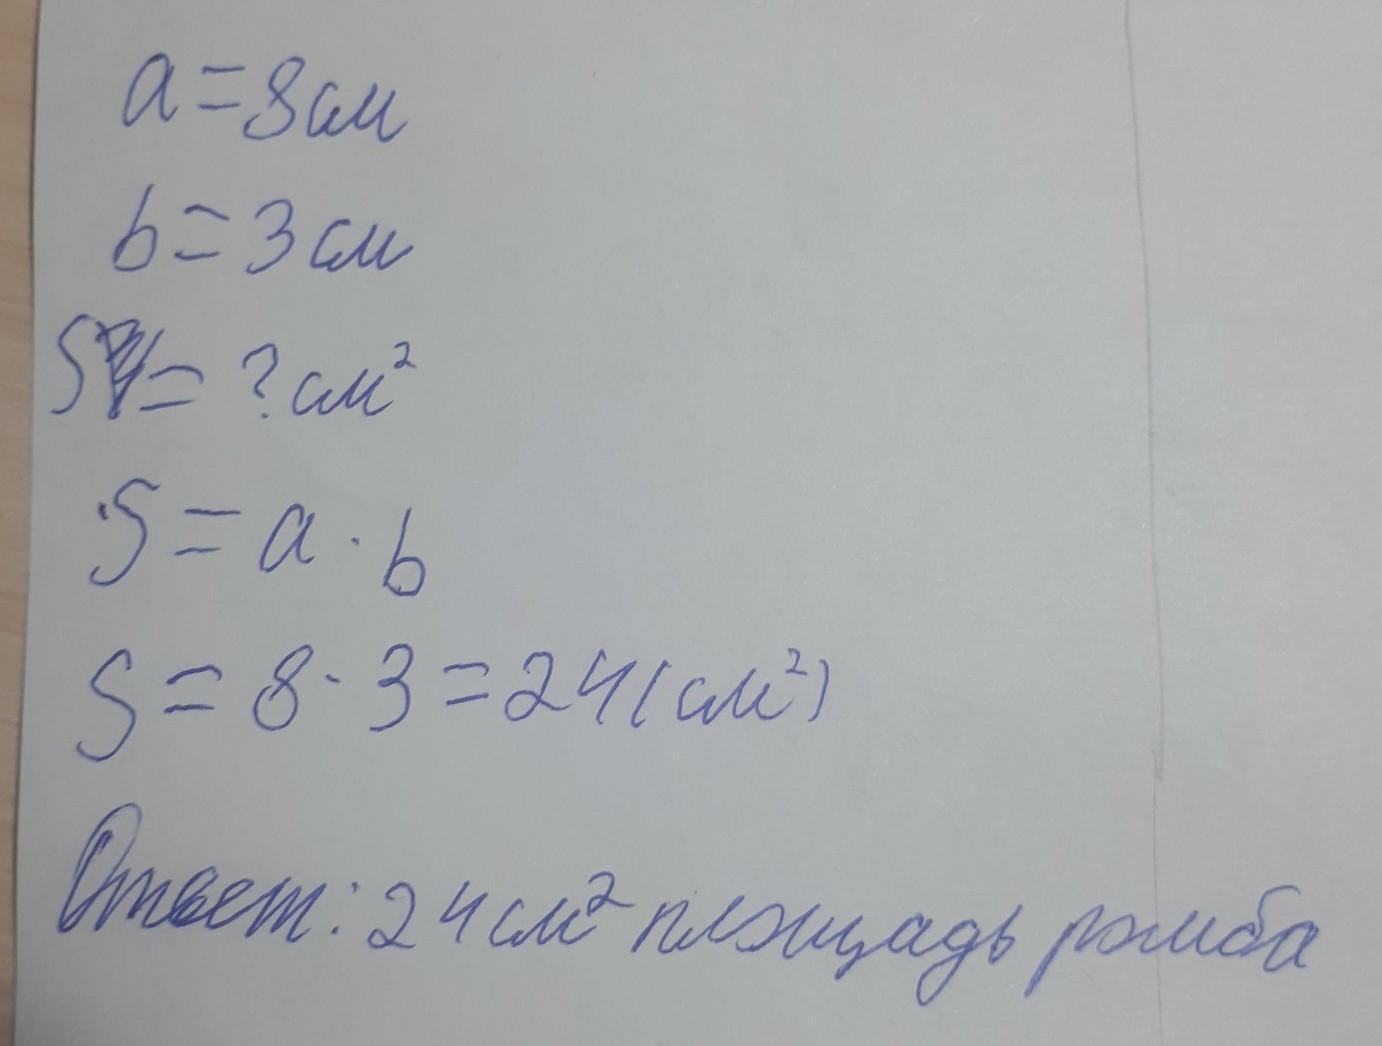 a = 8 см
b = 3 см
S = ? см²
S = a · b
S = 8 · 3 = 24 (см²)
Ответ: 24 см² площадь ромба